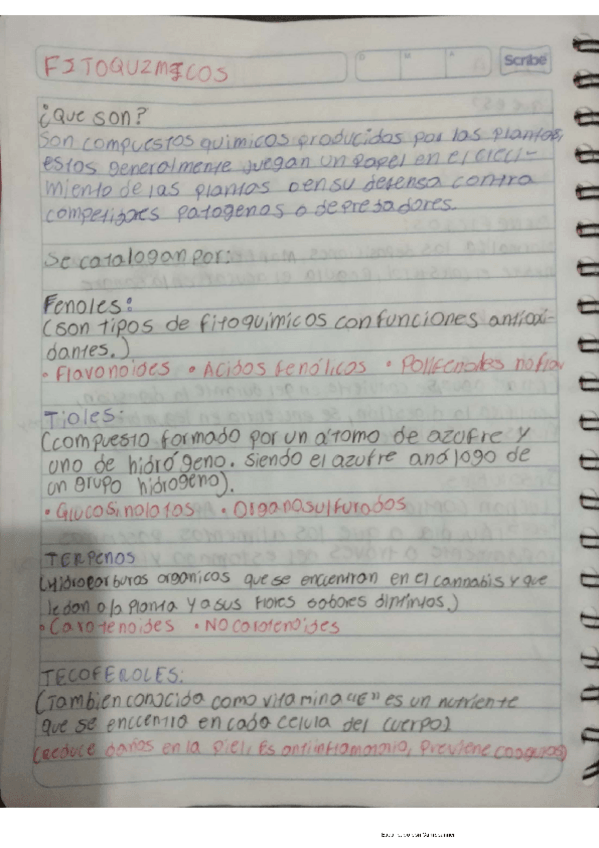 FITOQUIMICOS
D M A Scribe
¿Que son?
Son compuestos quimicos producidos por las plantas,
estos generalmente juegan un papel en el creci-
miento de las plantas o en su defensa contra
competidores patogenos o depredadores.
Se catalogan por:
Fenoles:
(son tipos de fitoquimicos con funciones antioxi-
dantes.)
• Flavonoides • Acidos fenólicos • Polifenoles no flav
Tioles:
(compuesto formado por un átomo de azufre y
uno de hidrógeno. Siendo el azufre análogo de
un grupo hidrogeno).
• Glucosinolatos • Organosulfurados
TERPENOS
(Hidrocarburos organicos que se encuentran en el cannabis y que
le dan a la planta y a sus flores sabores distintos.)
• Carotenoides • NO carotenoides
TECOFEROLES:
(Tambien conocida como vitamina "E" es un nutriente
que se enccentra en cada celula del cuerpo)
(Reduce daños en la piel, Es antiinflamatorio, Previene